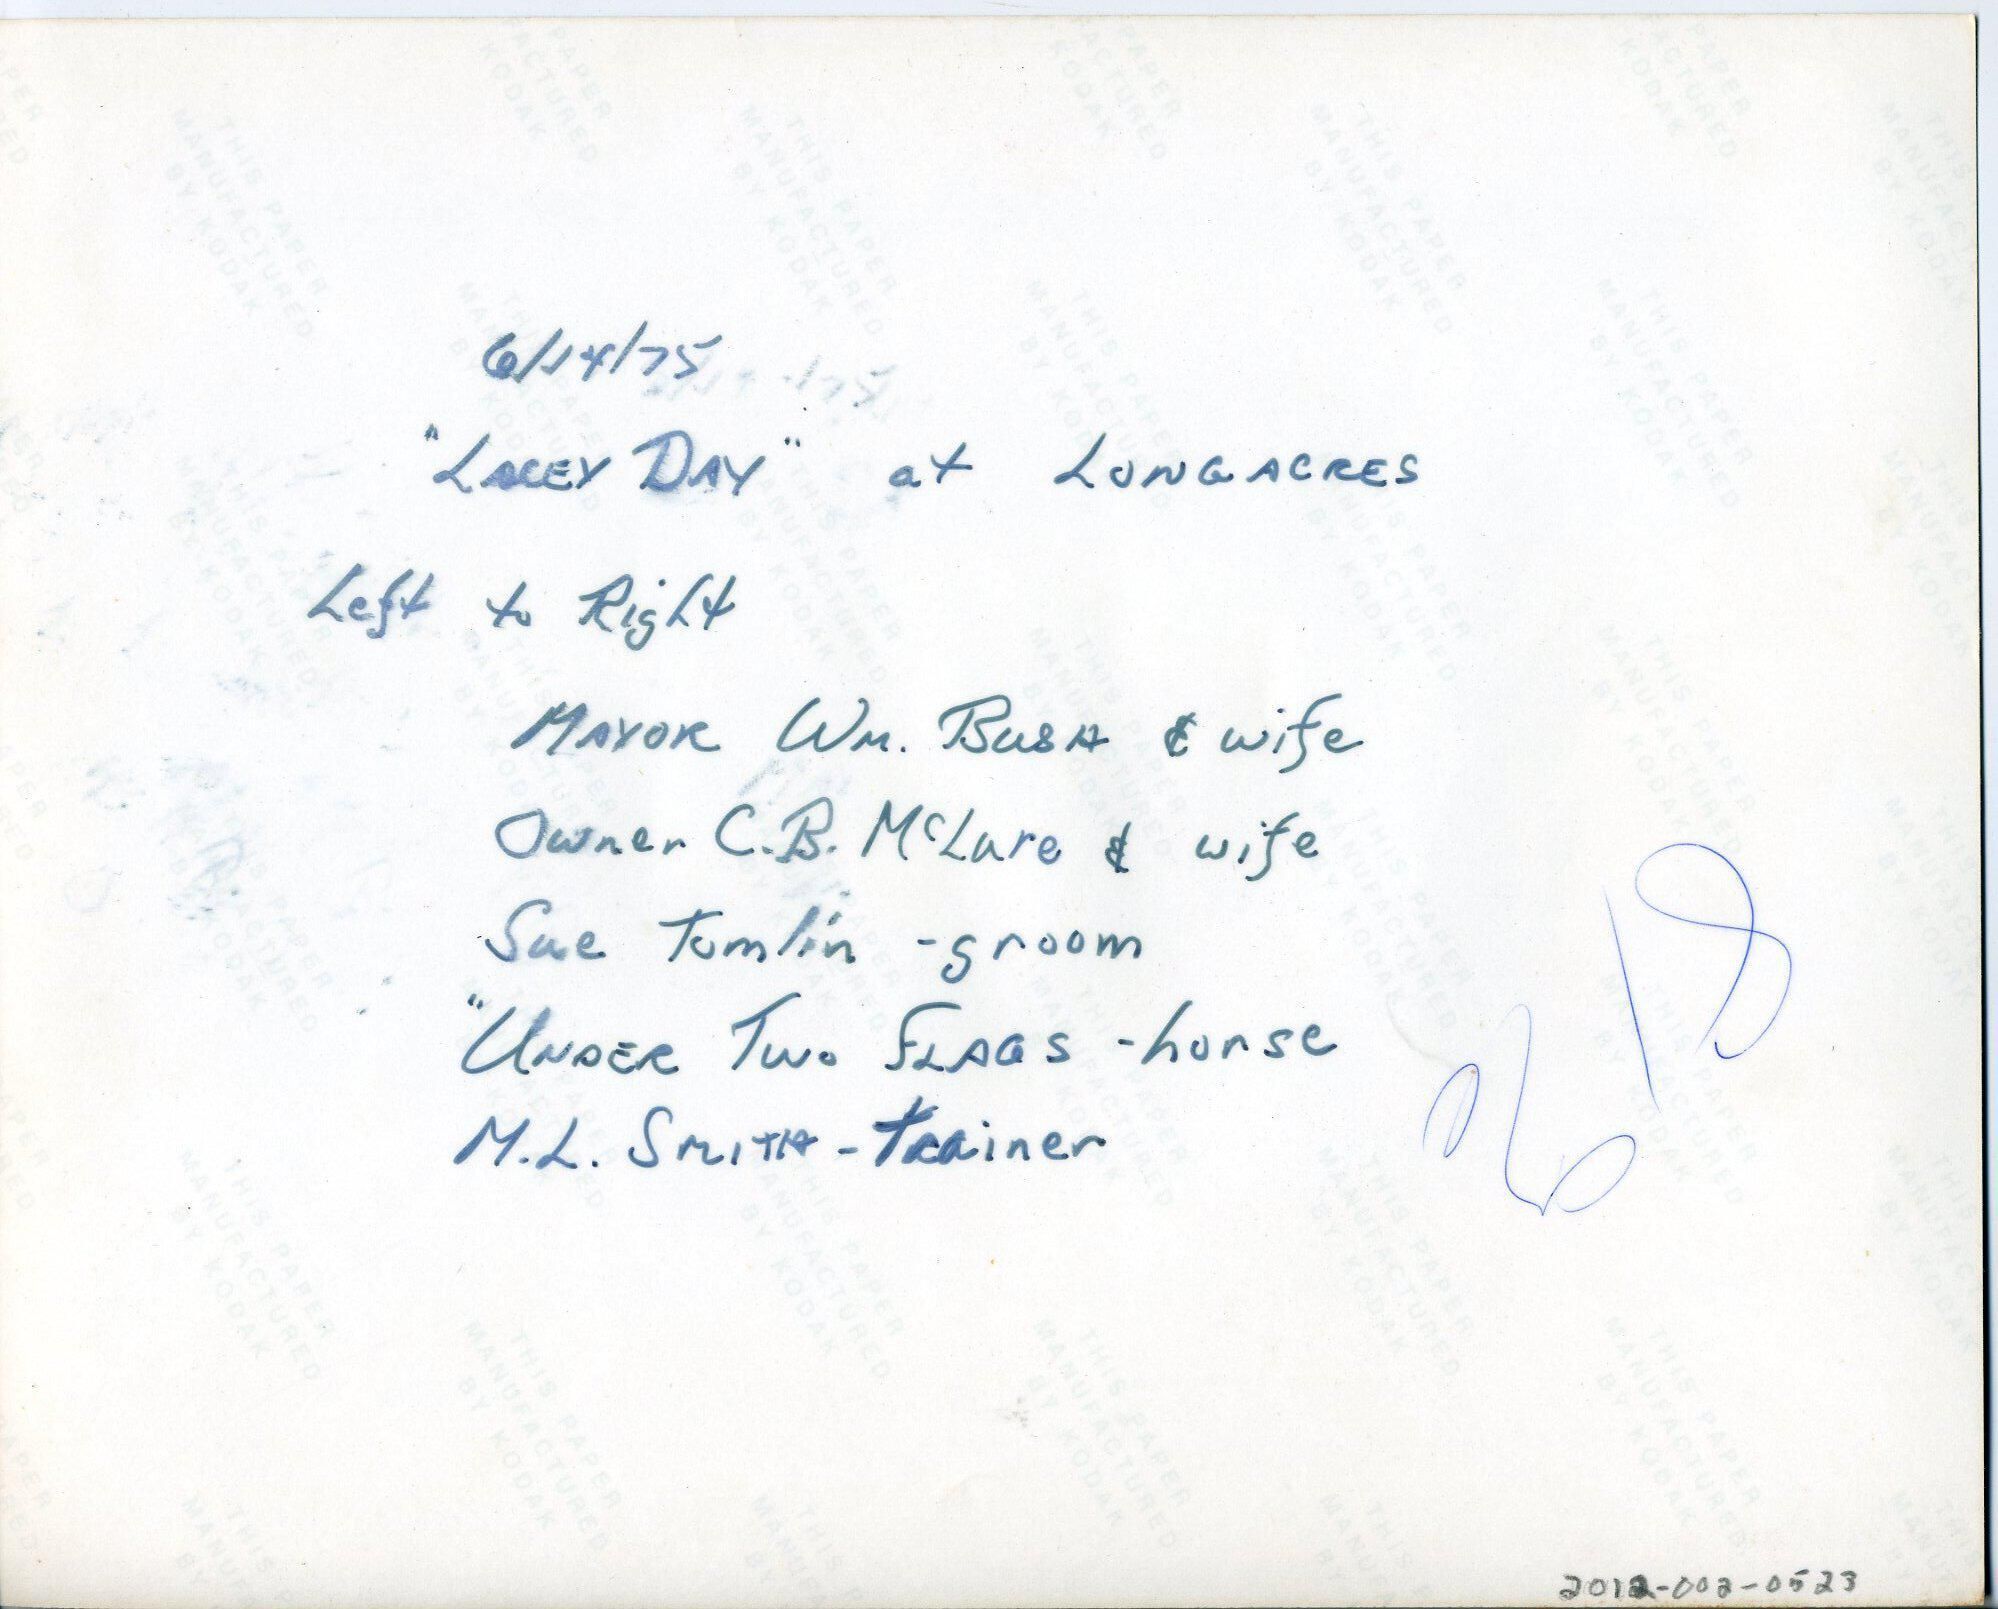 6/14/75
"LACEY DAY" at LONGACRES
Left to Right
MAYOR Wm. BUSH & wife
Owner C.B. McLure & wife
Sue Tomlin - groom
"UNDER TWO FLAGS - horse
M.L. SMITH - Trainer
2012-002-0523
THIS PAPER
MANUFACTURED
BY KODAK